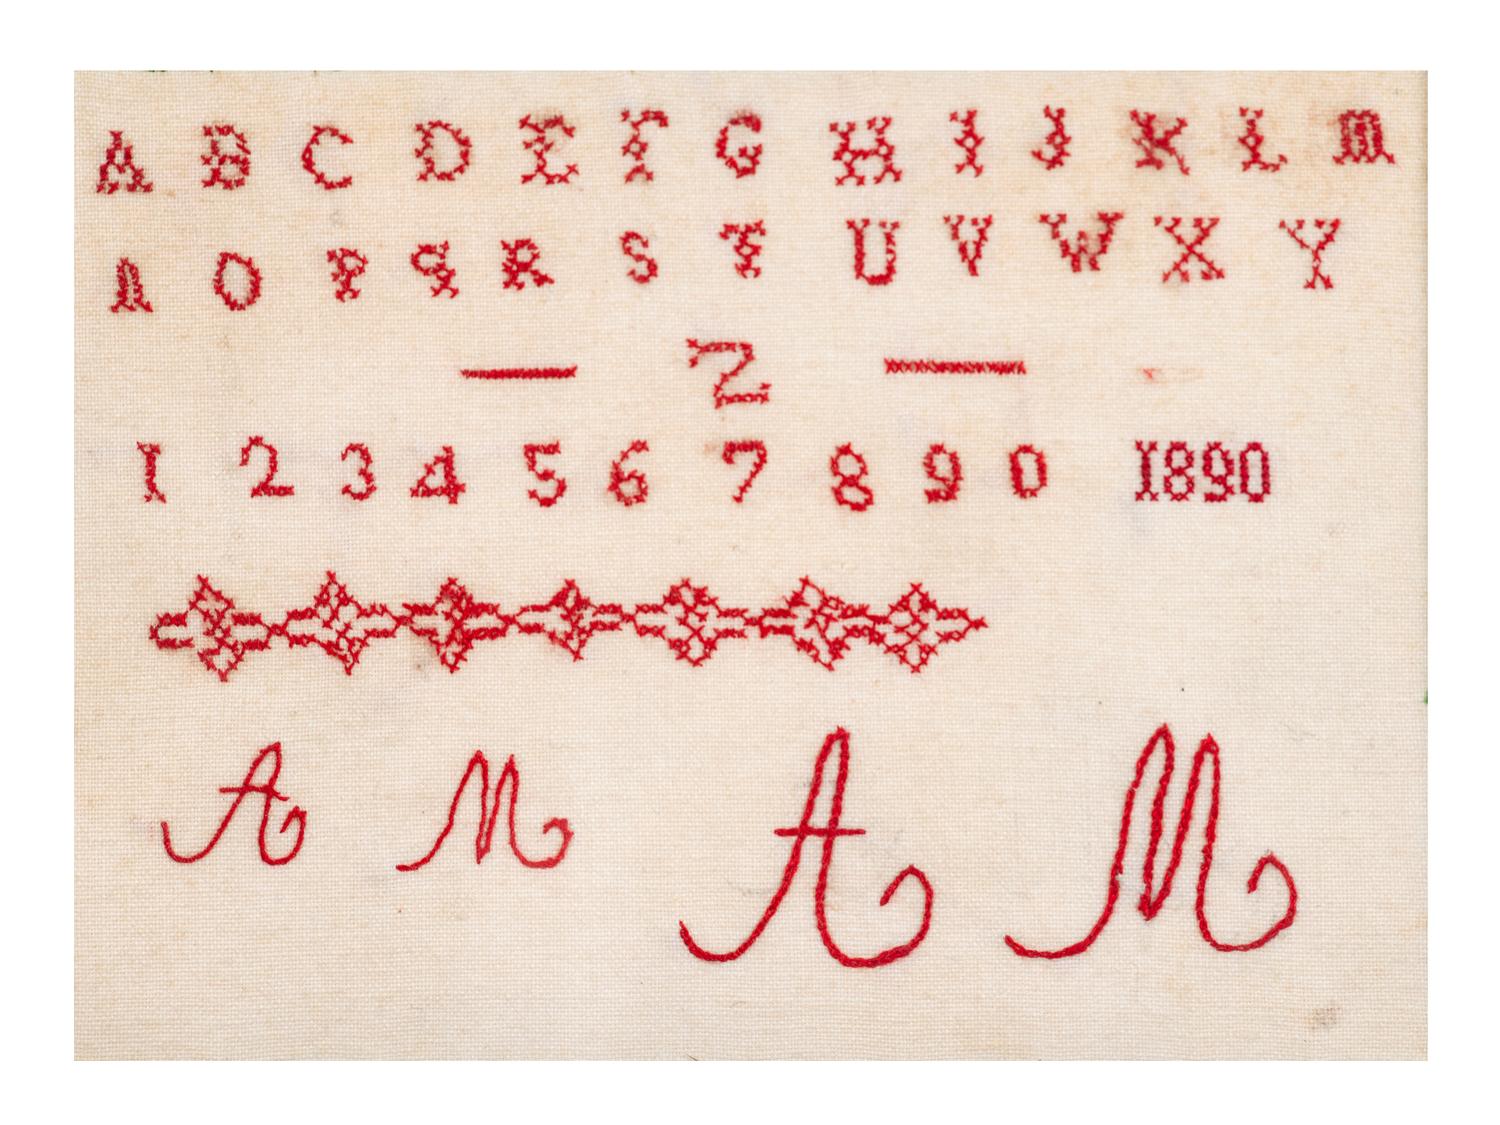 A B C D E F G H I J K L M
N O P Q R S T U V W X Y
— Z —
1 2 3 4 5 6 7 8 9 0 1890
A M A M